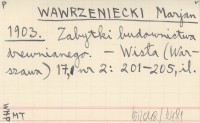 P
WAWRZENIECKI Marjan
1903. Zabytki budownictwa
drewnianego. – Wisła (War-
szawa) 17, nr 2: 201–205, il.
WHP MT